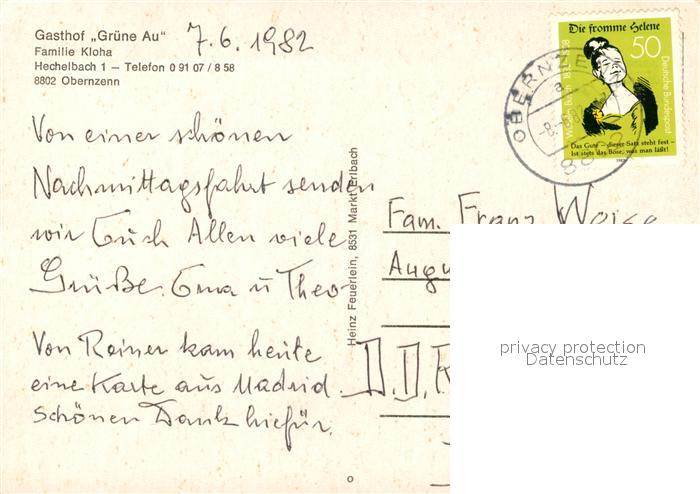 Gasthof „Grüne Au"
Familie Kloha
Hechelbach 1 — Telefon 0 91 07 / 8 58
8802 Obernzenn
7.6.1982
Von einer schönen
Nachmittagsfahrt senden
wir Euch Allen viele
Grüße. Erna u Theo
Von Reiner kam heute
eine Karte aus Madrid.
Schönen Dank hiefür.
Heinz Feuerlein, 8531 Markt Erlbach
Die fromme Helene
50
Deutsche Bundespost
Wilhelm Busch 1832-1908
Das Gute – dieser Satz steht fest –
Ist stets das Böse, was man läßt!
1982
OBERNZE
a
-8.-6.82
88
Fam. Franz Weise
Augu
D.D.R
privacy protection
Datenschutz